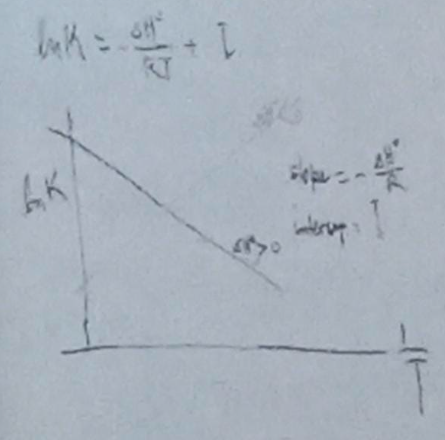 lnK = -ΔH°/RT + I
lnK
slope = -ΔH°/R
intercep = I
ΔH°>0
1/T